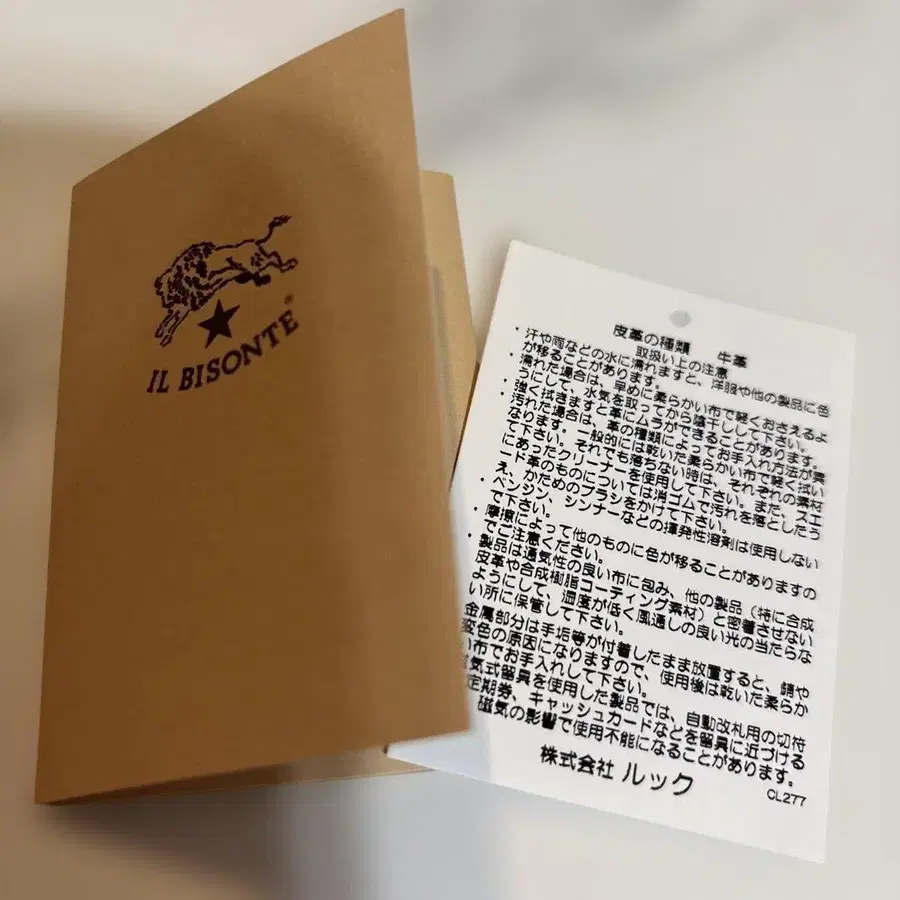 IL BISONTE®
皮革の種類 牛革
取扱い上の注意
・汗や雨などの水に濡れますと、洋服や他の製品に色
が移ることがあります。
・濡れた場合は、早めに柔らかい布で軽くおさえるよ
うにして、水気を取ってから陰干しして下さい。
・強く拭きますと革にムラができることがあります。
・汚れた場合は、革の種類によってお手入れ方法が異
なります。一般的には乾いた柔らかい布で軽く拭い
て下さい。それでも落ちない時は、それぞれの素材
にあったクリーナーを使用して下さい。また、スエ
ード革のものについては消ゴムで汚れを落としたう
え、かためのブラシをかけて下さい。
・ベンジン、シンナーなどの揮発性溶剤は使用しない
で下さい。
・摩擦によって他のものに色が移ることがありますの
でご注意ください。
・製品は通気性の良い布に包み、他の製品（特に合成
皮革や合成樹脂コーティング素材）と密着させない
ようにして、湿度が低く風通しの良い光の当たらな
い所に保管して下さい。
金属部分は手垢等が付着したまま放置すると、錆や
変色の原因になりますので、使用後は乾いた柔らか
い布でお手入れして下さい。
磁気式留具を使用した製品では、自動改札用の切符
定期券、キャッシュカードなどを留具に近づける
磁気の影響で使用不能になることがあります。
株式会社 ルック
CL277